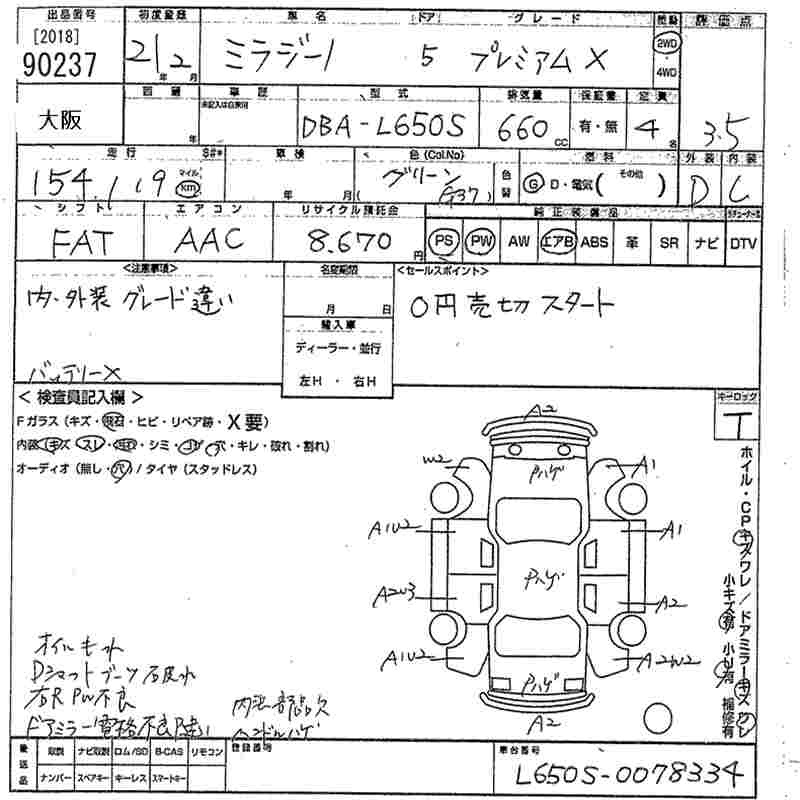 出品番号 初度登録 車名 ドア グレード 駆動 評価点
[2018]
90237
21 年 2 月 ミラジーノ 5 プレミアムX
2WD
4WD
大阪
年 車歴 型式 排気量 保証書 定員
未記入は自家用
DBA-L650S 660 CC 有・無 4 3.5
走行 車検 色(Col.No) 燃料 外装 内装
154,119 マイル km 年 月 グリーン (G37) 色替 G D・電気( その他 ) D C
シフト エアコン リサイクル預託金 純正装備品
FAT AAC 8,670円 PS PW AW エアB ABS 革 SR ナビ DTV
<注意事項> 名変期限 <セールスポイント>
内・外装 グレード違い 月 日 0円売切スタート
輸入車
ディーラー・並行
バッテリーX 左H ・ 右H
< 検査員記入欄 > キーロック
Fガラス(キズ・飛石・ヒビ・リペア跡・X要) T
内装(キズ スレ・汚れ・シミ・コゲ 穴・キレ・破れ・割れ)
オーディオ(無し・穴)/タイヤ(スタッドレス)
A2
W2 Pハゲ A1
A1U2 A1
A2U3 Pハゲ A2
A1U2 Pハゲ A2W2
A2
ホイル・CPキズワレ/ドアミラーキズワレ
小キズ有 小U有 補修有
オイルモレ
Dシャフトブーツ
右R PW不良 内装部品欠
ドアミラー電格不良 ハンドルハゲ
後送品 取説 ナビ取説 ロム/SD B-CAS リモコン 登録番号 車台番号
ナンバー スペアキー キーレス スマートキー L650S-0078334